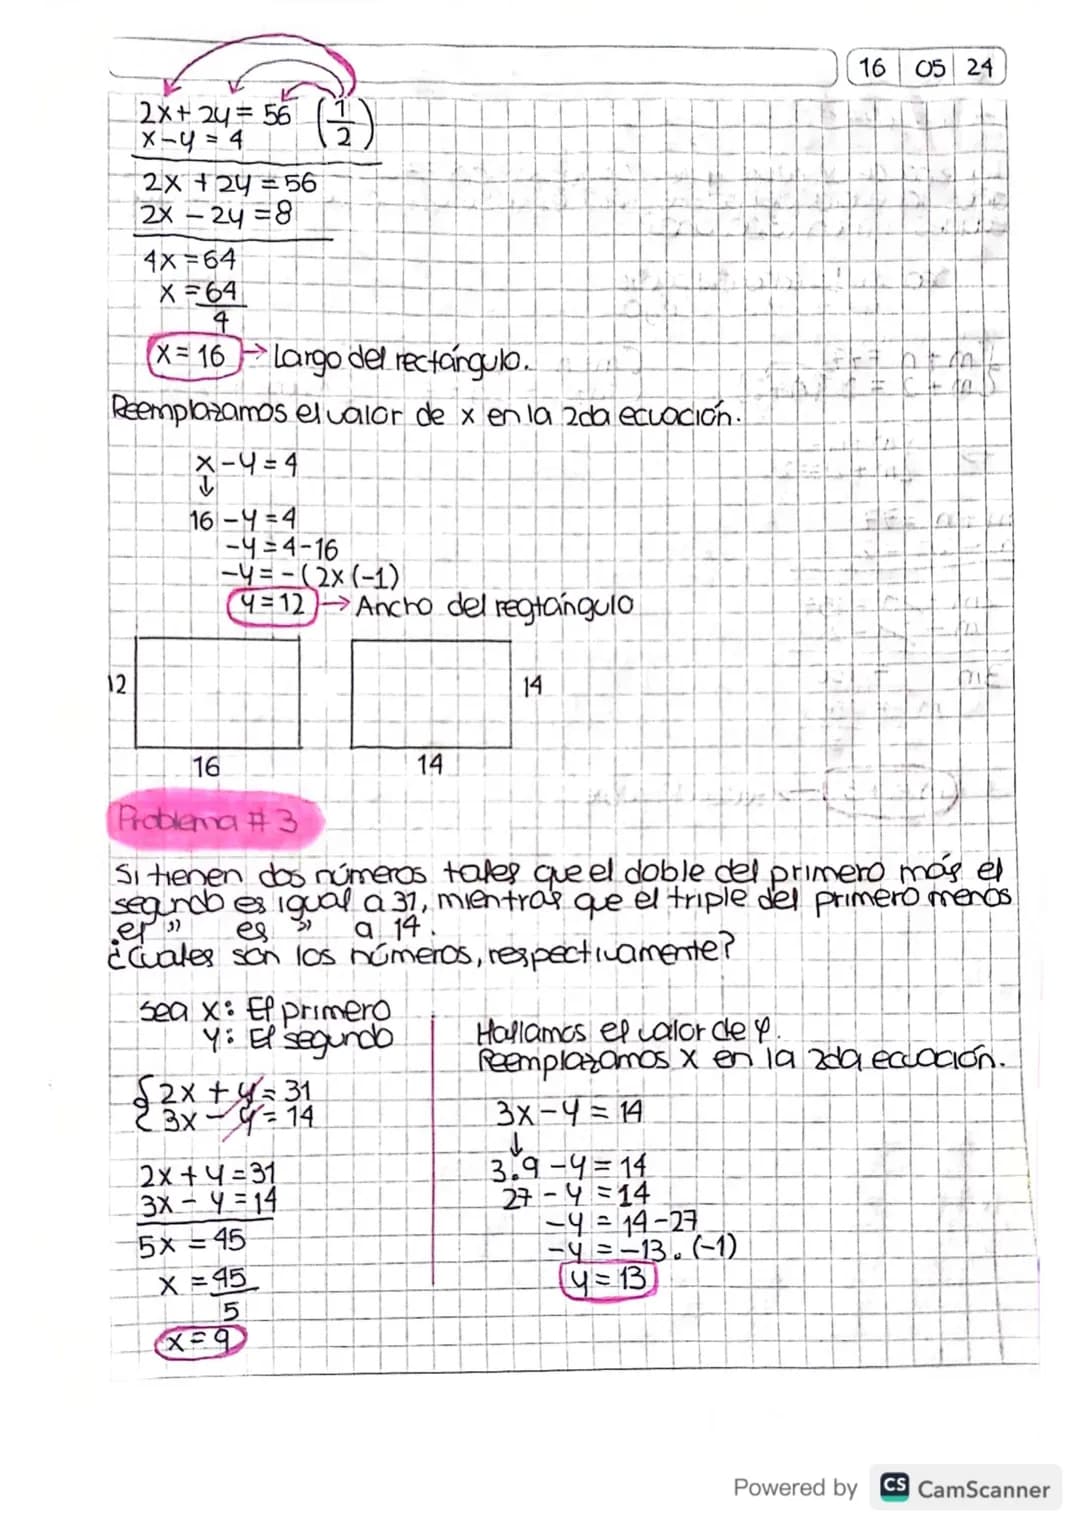 16 05 24
2x + 2y = 56 (1/2)
x - y = 4
2x + 2y = 56
2x - 2y = 8
4x = 64
x = 64
4
x = 16 → Largo del rectángulo.
Reemplazamos el valor de x en la 2da ecuación.
x - y = 4
↓
16 - y = 4
-y = 4 - 16
-y = -12x (-1)
y = 12 → Ancho del regtángulo
12
14
16
14
Problema # 3
Si tienen dos números tales que el doble del primero más el
segundo es igual a 31, mientras que el triple del primero menos
el " es " a 14.
¿Cuales son los números, respectivamente?
sea x: El primero
y: El segundo
{ 2x + y = 31
3x - y = 14
2x + y = 31
3x - y = 14
5x = 45
x = 45
5
x = 9
Hallamos el valor de y.
Reemplazamos x en la 2da ecuación.
3x - y = 14
↓
3.9 - y = 14
27 - y = 14
-y = 14 - 27
-y = -13 . (-1)
y = 13
Powered by CS CamScanner